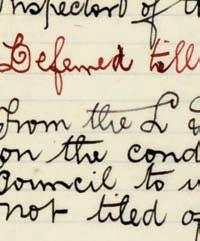 Inspector of t
Deferred till
From the L &
on the cond
Council to
not tiled o